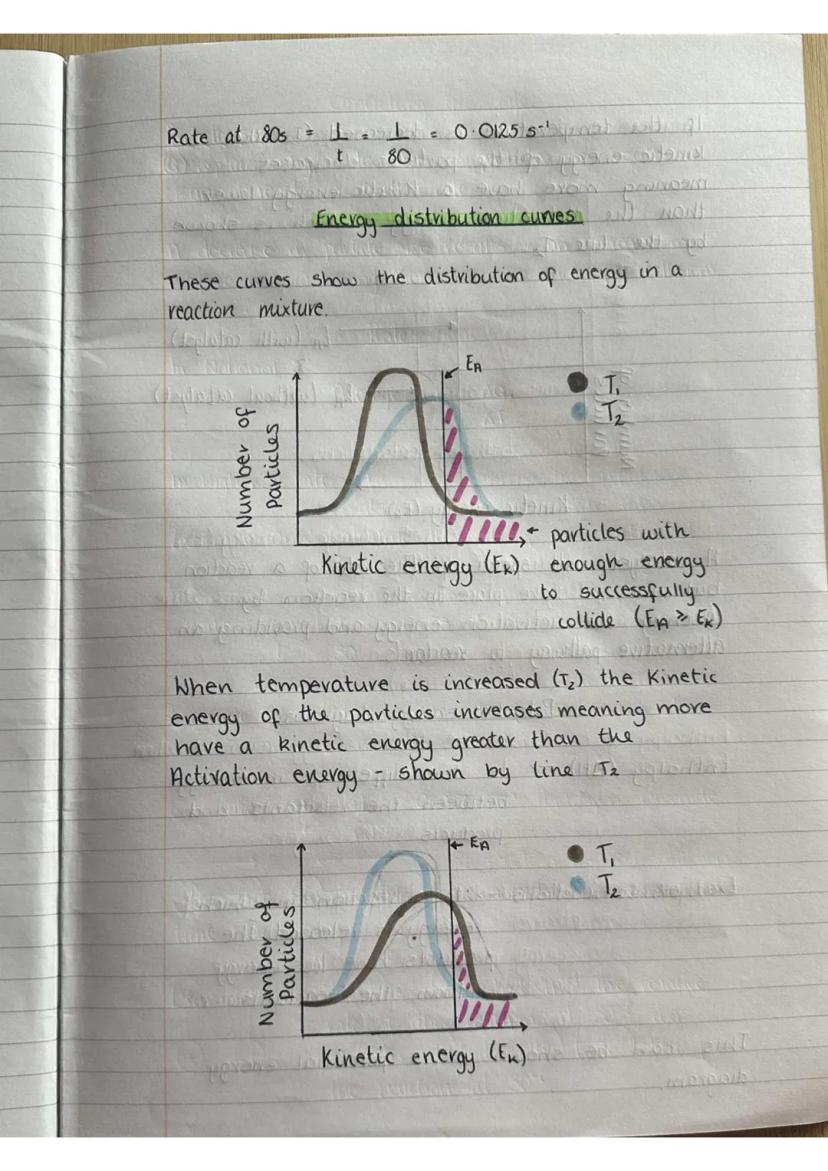 Rate at 80s = 1/t = 1/80 = 0.0125 s⁻¹
Energy distribution curves
These curves show the distribution of energy in a
reaction mixture.
Eᴀ
T₁
T₂
Number of
Particles
Kinetic energy (Eₖ)
← particles with
enough energy
to successfully
collide (Eᴀ ⩾ Eₖ)
When temperature is increased (T₂) the Kinetic
energy of the particles increases meaning more
have a kinetic energy greater than the
Activation energy - shown by line T₂
← Eᴀ
T₁
T₂
Number of
Particles
Kinetic energy (Eₖ)